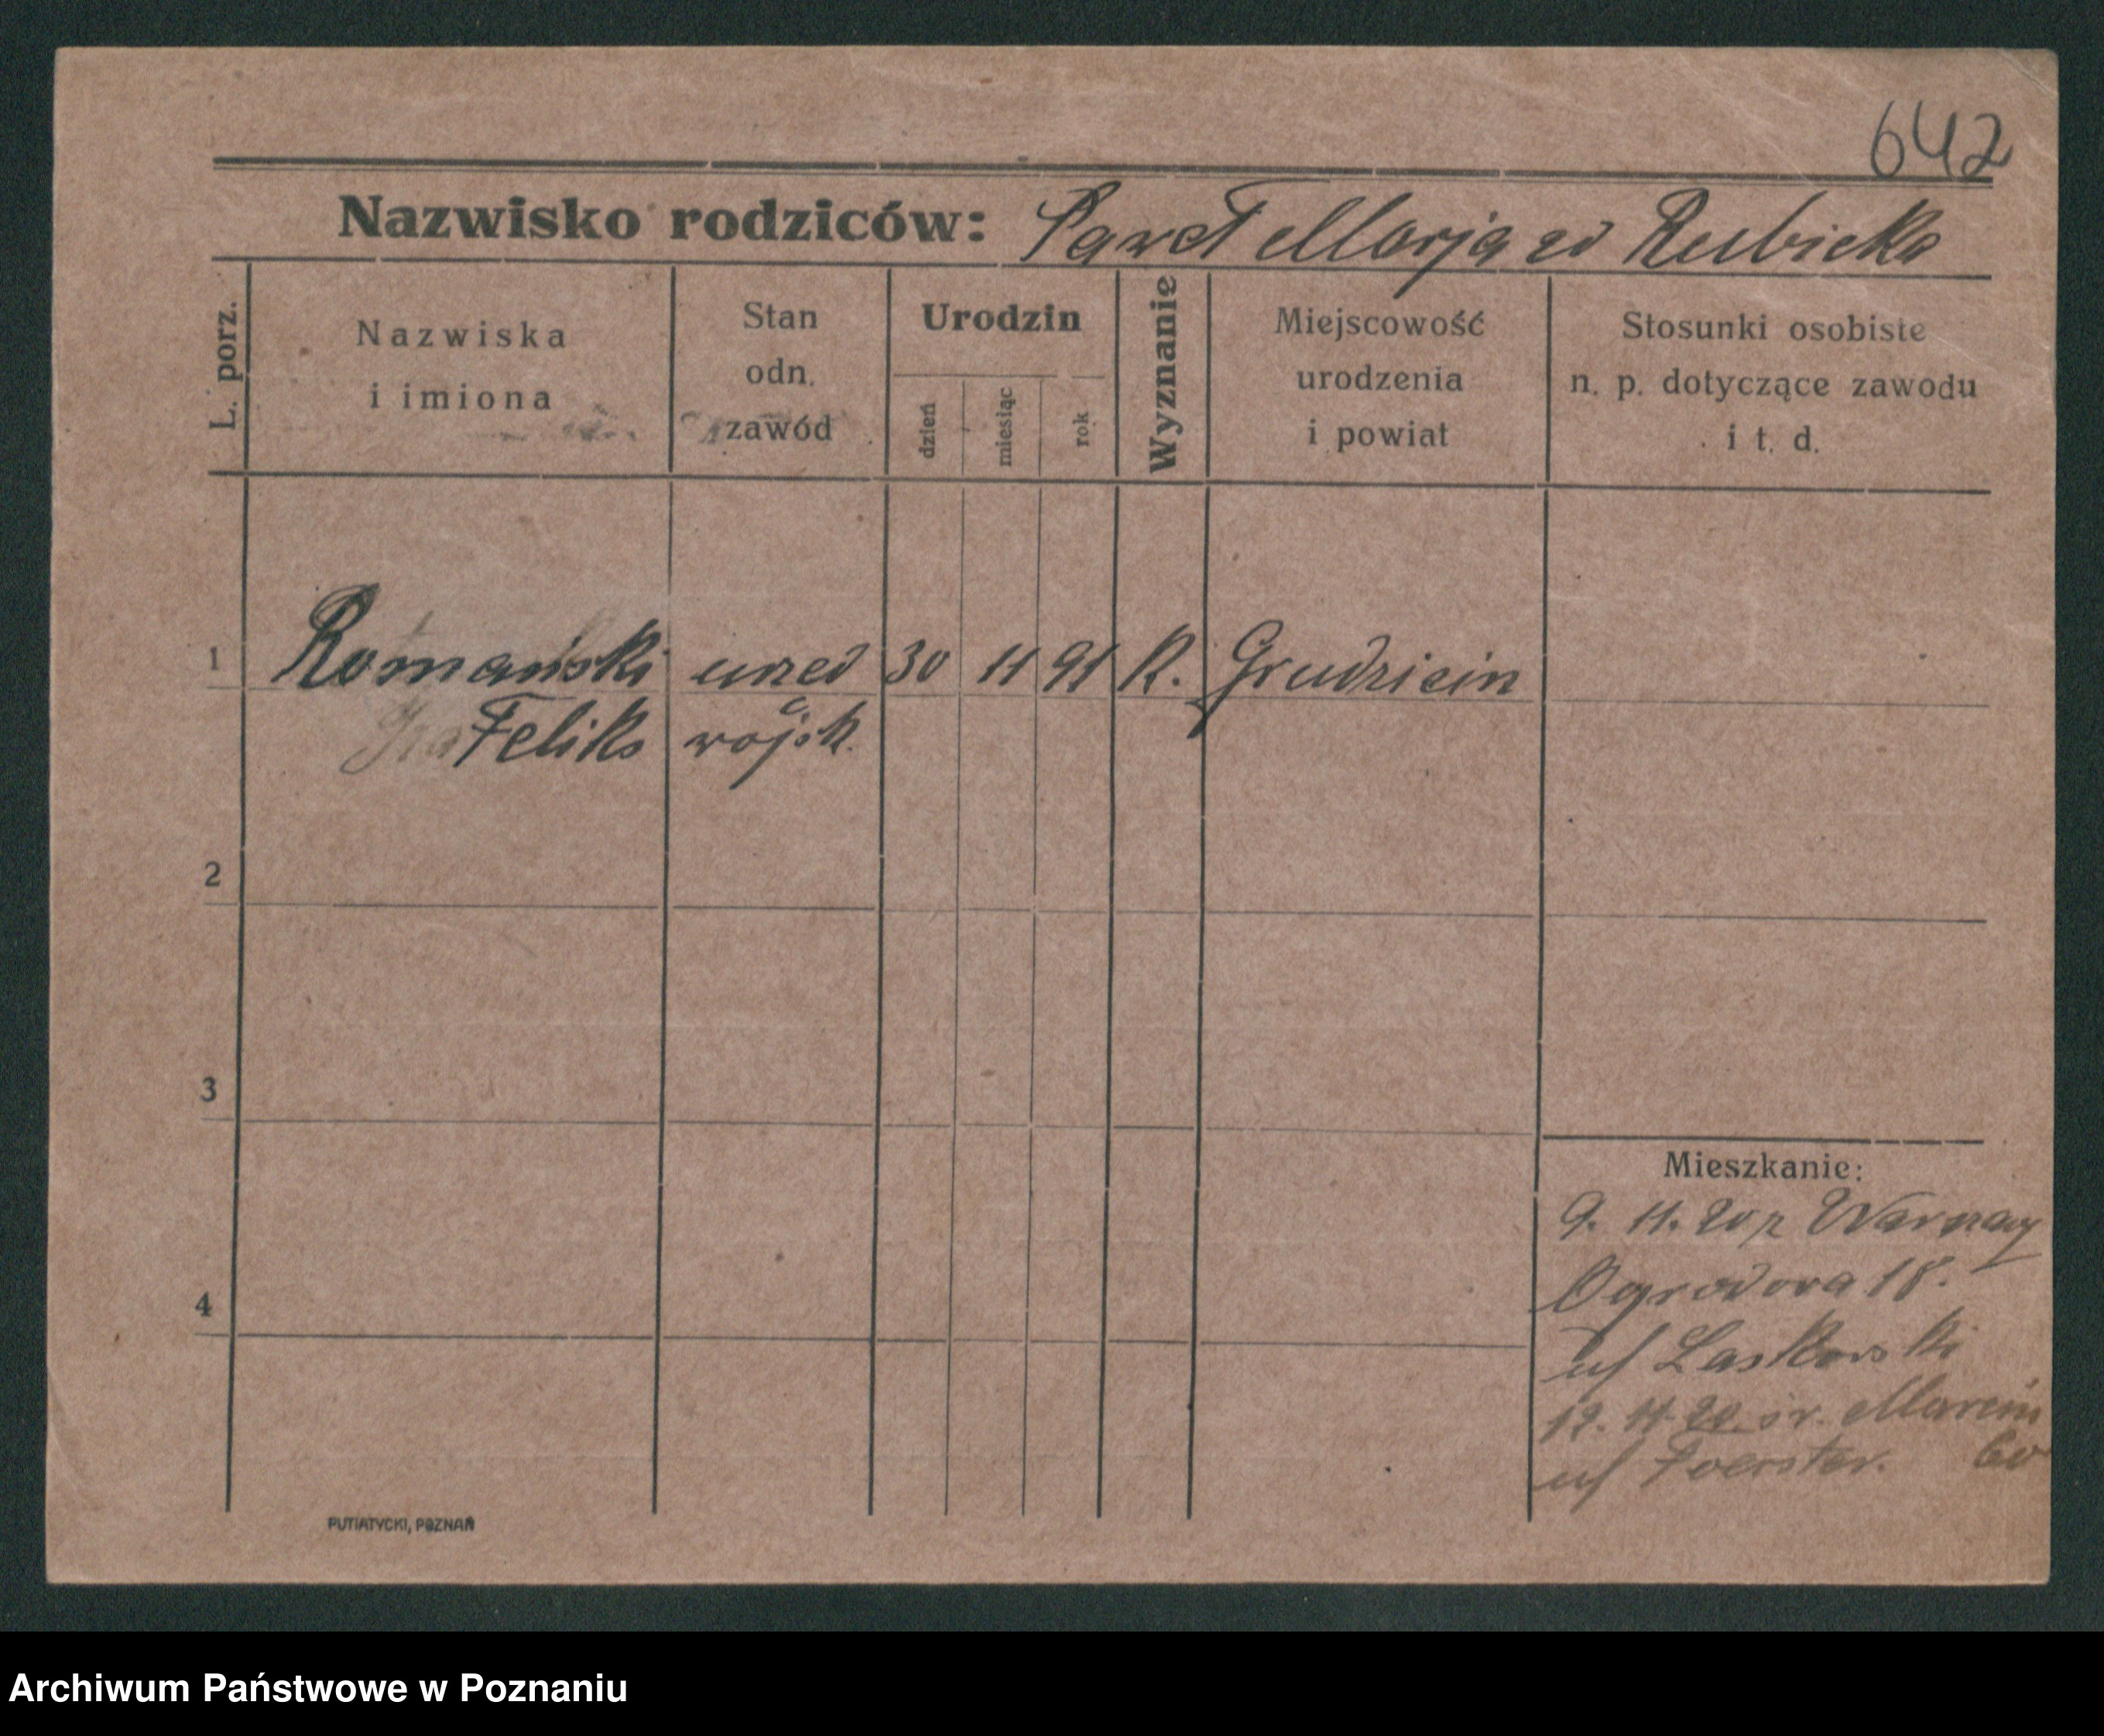 642
Nazwisko rodziców: Paweł Marja zd Rubicka
L. porz.
Nazwiska
i imiona
Stan
odn.
zawód
Urodzin
dzień
miesiąc
rok
Wyznanie
Miejscowość
urodzenia
i powiat
Stosunki osobiste
n. p. dotyczące zawodu
i t. d.
1 Romański urzęd 30 11 91 K.
Feliks wojsk.
2
3
4
Mieszkanie:
9. 11. 20 z Warszawy
Ogrodowa 18.
u/ Laskowski
12. 11. 20. św. Marcin
u/ Foerster. 60
PUTIATYCKI, POZNAŃ
Archiwum Państwowe w Poznaniu